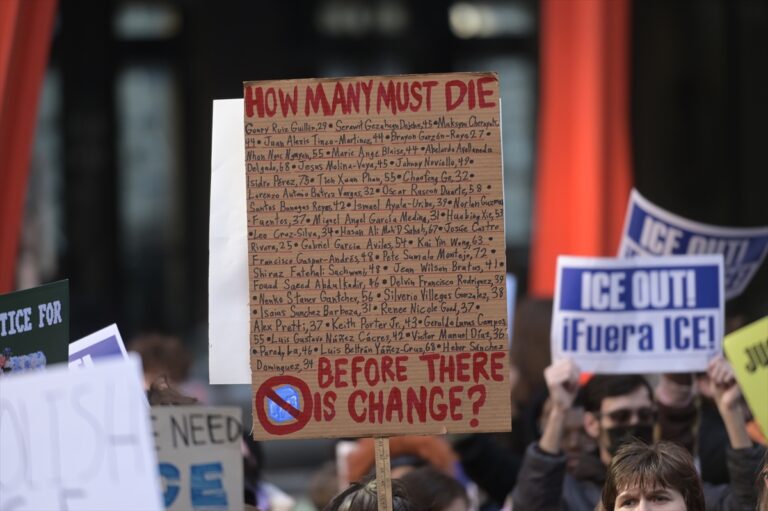 HOW MANY MUST DIE
Genry Ruiz Guillen, 29 • Serawit Gezahegn Dejene, 45 • Maksym Chernyak,
44 • Juan Alexis Tineo-Martinez, 44 • Brayan Garzón-Rayo 27 •
Nhon Ngoc Nguyen, 55 • Marie Ange Blaise, 44 • Abelardo Avellaneda
Delgado, 68 • Jesus Molina-Veya, 45 • Johnny Noviello, 49 •
Isidro Pérez, 75 • Tien Xuan Phan, 55 • Chaofeng Ge, 32 •
Lorenzo Antonio Batrez Vargas, 32 • Oscar Rascon Duarte, 58 •
Santos Banegas Reyes, 42 • Ismael Ayala-Uribe, 39 • Norlan Guzman
Fuentes, 37 • Miguel Angel García Medina, 31 • Huabing Xie, 53
• Leo Cruz-Silva, 34 • Hasan Ali Moh'D Saleh, 67 • Josué Castro
Rivera, 25 • Gabriel Garcia Aviles, 54 • Kai Yin Wong, 63 •
Francisco Gaspar-Andrés, 48 • Pete Sumalo Montejo, 72 •
Shiraz Fatehali Sachwani, 48 • Jean Wilson Brutus, 41 •
Fouad Saeed Abdulkadir, 46 • Delvin Francisco Rodriguez, 39
• Nenko Stanev Gantchev, 56 • Silverio Villegas González, 38
• Josué Castro Rivera
Alex Pretti, 37 • Keith Porter Jr, 43 • Geraldo Lunas Campos
55 • Luis Gustavo Núñez Cáceres, 42 • Victor Manuel Diaz, 36
• Parady La, 46 • Luis Beltrán Yáñez-Cruz, 68 • Heber
Domínguez, 34
BEFORE THERE
IS CHANGE?
ICE OUT!
ICE OUT!
¡Fuera ICE!
TICE FOR
NEED
CE
OLISH
JU